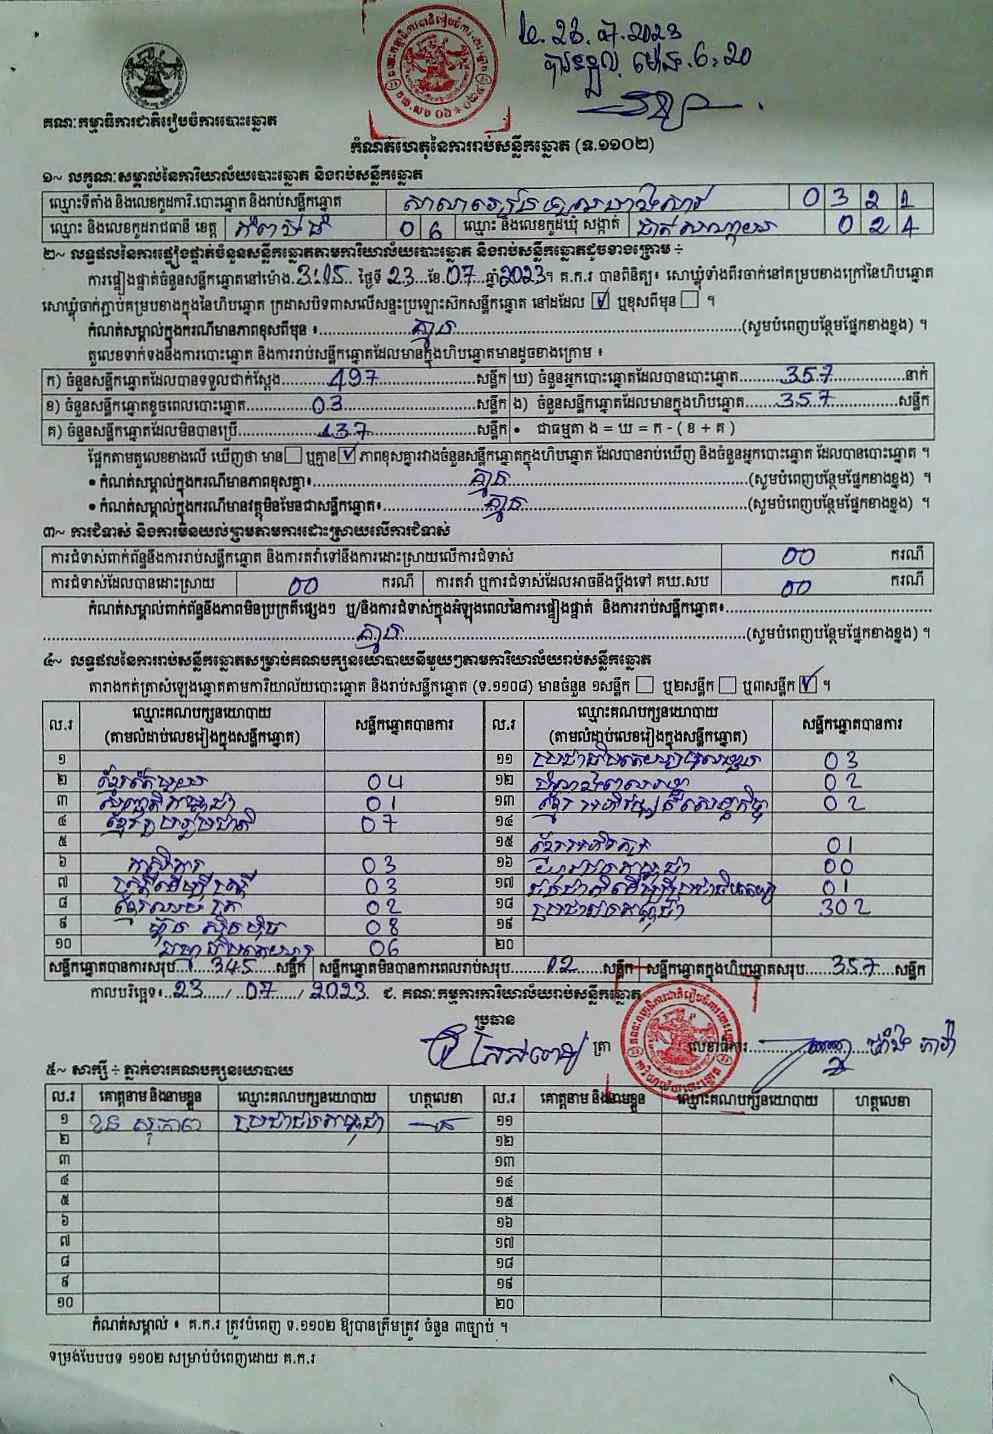 23.07.2023
ម៉ោង.6:20
គណៈកម្មាធិការជាតិរៀបចំការបោះឆ្នោត
កំណត់ហេតុនៃការរាប់សន្លឹកឆ្នោត (ទ.១១០២)
១~ លក្ខណៈសម្គាល់នៃការិយាល័យបោះឆ្នោត និងរាប់សន្លឹកឆ្នោត
ឈ្មោះទីតាំង និងលេខកូដការិ.បោះឆ្នោត និងរាប់សន្លឹកឆ្នោត 0 3 2 1
ឈ្មោះ និងលេខកូដរាជធានី ខេត្ត កំពង់ធំ 0 6 ឈ្មោះ និងលេខកូដឃុំ សង្កាត់ 0 2 4
២~ លទ្ធផលនៃការផ្ទៀងផ្ទាត់ចំនួនសន្លឹកឆ្នោតតាមការិយាល័យបោះឆ្នោត និងរាប់សន្លឹកឆ្នោតដូចខាងក្រោម ÷
ការផ្ទៀងផ្ទាត់ចំនួនសន្លឹកឆ្នោតនៅម៉ោង.3:15. ថ្ងៃទី 23.ខែ.07.ឆ្នាំ2023។ គ.ក.រ បានពិនិត្យ៖ សោឃ្លុំទាំងពីរចាក់នៅគម្របខាងក្រៅនៃហិបឆ្នោត
សោឃ្លុំចាក់ភ្ជាប់គម្របខាងក្នុងនៃហិបឆ្នោត ក្រដាសបិទពាសលើសន្ទះប្រឡោះស៊កសន្លឹកឆ្នោត នៅដដែល ☑ ឬខុសពីមុន ☐ ។
កំណត់សម្គាល់ក្នុងករណីមានភាពខុសពីមុន ៖ គ្មាន (សូមបំពេញបន្ថែមផ្នែកខាងខ្នង) ។
តួលេខទាក់ទងនឹងការបោះឆ្នោត និងការរាប់សន្លឹកឆ្នោតដែលមានក្នុងហិបឆ្នោតមានដូចខាងក្រោម ៖
ក) ចំនួនសន្លឹកឆ្នោតដែលបានទទួលជាក់ស្តែង 497 សន្លឹក ឃ) ចំនួនអ្នកបោះឆ្នោតដែលបានបោះឆ្នោត 357 នាក់
ខ) ចំនួនសន្លឹកឆ្នោតខូចពេលបោះឆ្នោត 03 សន្លឹក ង) ចំនួនសន្លឹកឆ្នោតដែលមានក្នុងហិបឆ្នោត 357 សន្លឹក
គ) ចំនួនសន្លឹកឆ្នោតដែលមិនបានប្រើ 137 សន្លឹក • ជាធម្មតា ង = ឃ = ក - ( ខ + គ )
ផ្អែកតាមតួលេខខាងលើ ឃើញថា មាន ☐ ឬគ្មាន ☑ ភាពខុសគ្នារវាងចំនួនសន្លឹកឆ្នោតក្នុងហិបឆ្នោត ដែលបានរាប់ឃើញ និងចំនួនអ្នកបោះឆ្នោត ដែលបានបោះឆ្នោត ។
• កំណត់សម្គាល់ក្នុងករណីមានភាពខុសគ្នា៖ គ្មាន (សូមបំពេញបន្ថែមផ្នែកខាងខ្នង) ។
• កំណត់សម្គាល់ក្នុងករណីមានវត្ថុមិនមែនជាសន្លឹកឆ្នោត៖ គ្មាន (សូមបំពេញបន្ថែមផ្នែកខាងខ្នង) ។
៣~ ការជំទាស់ និងការមិនយល់ព្រមតាមការដោះស្រាយលើការជំទាស់
ការជំទាស់ពាក់ព័ន្ធនឹងការរាប់សន្លឹកឆ្នោត និងការតវ៉ាទៅនឹងការដោះស្រាយលើការជំទាស់ 00 ករណី
ការជំទាស់ដែលបានដោះស្រាយ 00 ករណី ការតវ៉ា ឬការជំទាស់ដែលអាចនឹងប្តឹងទៅ គឃ.សប 00 ករណី
កំណត់សម្គាល់ពាក់ព័ន្ធនឹងភាពមិនប្រក្រតីផ្សេងៗ ឬ/និងការជំទាស់ក្នុងអំឡុងពេលនៃការផ្ទៀងផ្ទាត់ និងការរាប់សន្លឹកឆ្នោត៖
គ្មាន (សូមបំពេញបន្ថែមផ្នែកខាងខ្នង) ។
៤~ លទ្ធផលនៃការរាប់សន្លឹកឆ្នោតសម្រាប់គណបក្សនយោបាយនីមួយៗតាមការិយាល័យរាប់សន្លឹកឆ្នោត
តារាងកត់ត្រាសំឡេងឆ្នោតតាមការិយាល័យបោះឆ្នោត និងរាប់សន្លឹកឆ្នោត (ទ.១១០៨) មានចំនួន ១សន្លឹក ☐ ឬ២សន្លឹក ☐ ឬ៣សន្លឹក ☑ ។
ល.រ ឈ្មោះគណបក្សនយោបាយ (តាមលំដាប់លេខរៀងក្នុងសន្លឹកឆ្នោត) សន្លឹកឆ្នោតបានការ ល.រ ឈ្មោះគណបក្សនយោបាយ (តាមលំដាប់លេខរៀងក្នុងសន្លឹកឆ្នោត) សន្លឹកឆ្នោតបានការ
១ ១១ 03
២ ខ្មែរតែមួយ 04 ១២ 02
៣ 01 ១៣ 02
៤ ខ្មែររួបរួមជាតិ 07 ១៤
៥ ១៥ 01
៦ កសិករ 03 ១៦ 00
៧ ស្ត្រីដើម្បីស្ត្រី 03 ១៧ 01
៨ 02 ១៨ ប្រជាជនកម្ពុជា 302
៩ ហ៊្វុនស៊ិនប៉ិច 08 ១៩
១០ 06 ២០
សន្លឹកឆ្នោតបានការសរុប 345 សន្លឹក សន្លឹកឆ្នោតមិនបានការពេលរាប់សរុប 12 សន្លឹក សន្លឹកឆ្នោតក្នុងហិបឆ្នោតសរុប 357 សន្លឹក
កាលបរិច្ឆេទ៖ 23 / 07 / 2023 ជ. គណៈកម្មការការិយាល័យរាប់សន្លឹកឆ្នោត
ប្រធាន
ត្រា លេខាធិការ
៥~ សាក្សី ÷ ភ្នាក់ងារគណបក្សនយោបាយ
ល.រ គោត្តនាម និងនាមខ្លួន ឈ្មោះគណបក្សនយោបាយ ហត្ថលេខា ល.រ គោត្តនាម និងនាមខ្លួន ឈ្មោះគណបក្សនយោបាយ ហត្ថលេខា
១ ប្រជាជនកម្ពុជា ១១
២ ១២
៣ ១៣
៤ ១៤
៥ ១៥
៦ ១៦
៧ ១៧
៨ ១៨
៩ ១៩
១០ ២០
កំណត់សម្គាល់ ៖ គ.ក.រ ត្រូវបំពេញ ទ.១១០២ ឱ្យបានត្រឹមត្រូវ ចំនួន ៣ច្បាប់ ។
ទម្រង់បែបបទ ១១០២ សម្រាប់បំពេញដោយ គ.ក.រ